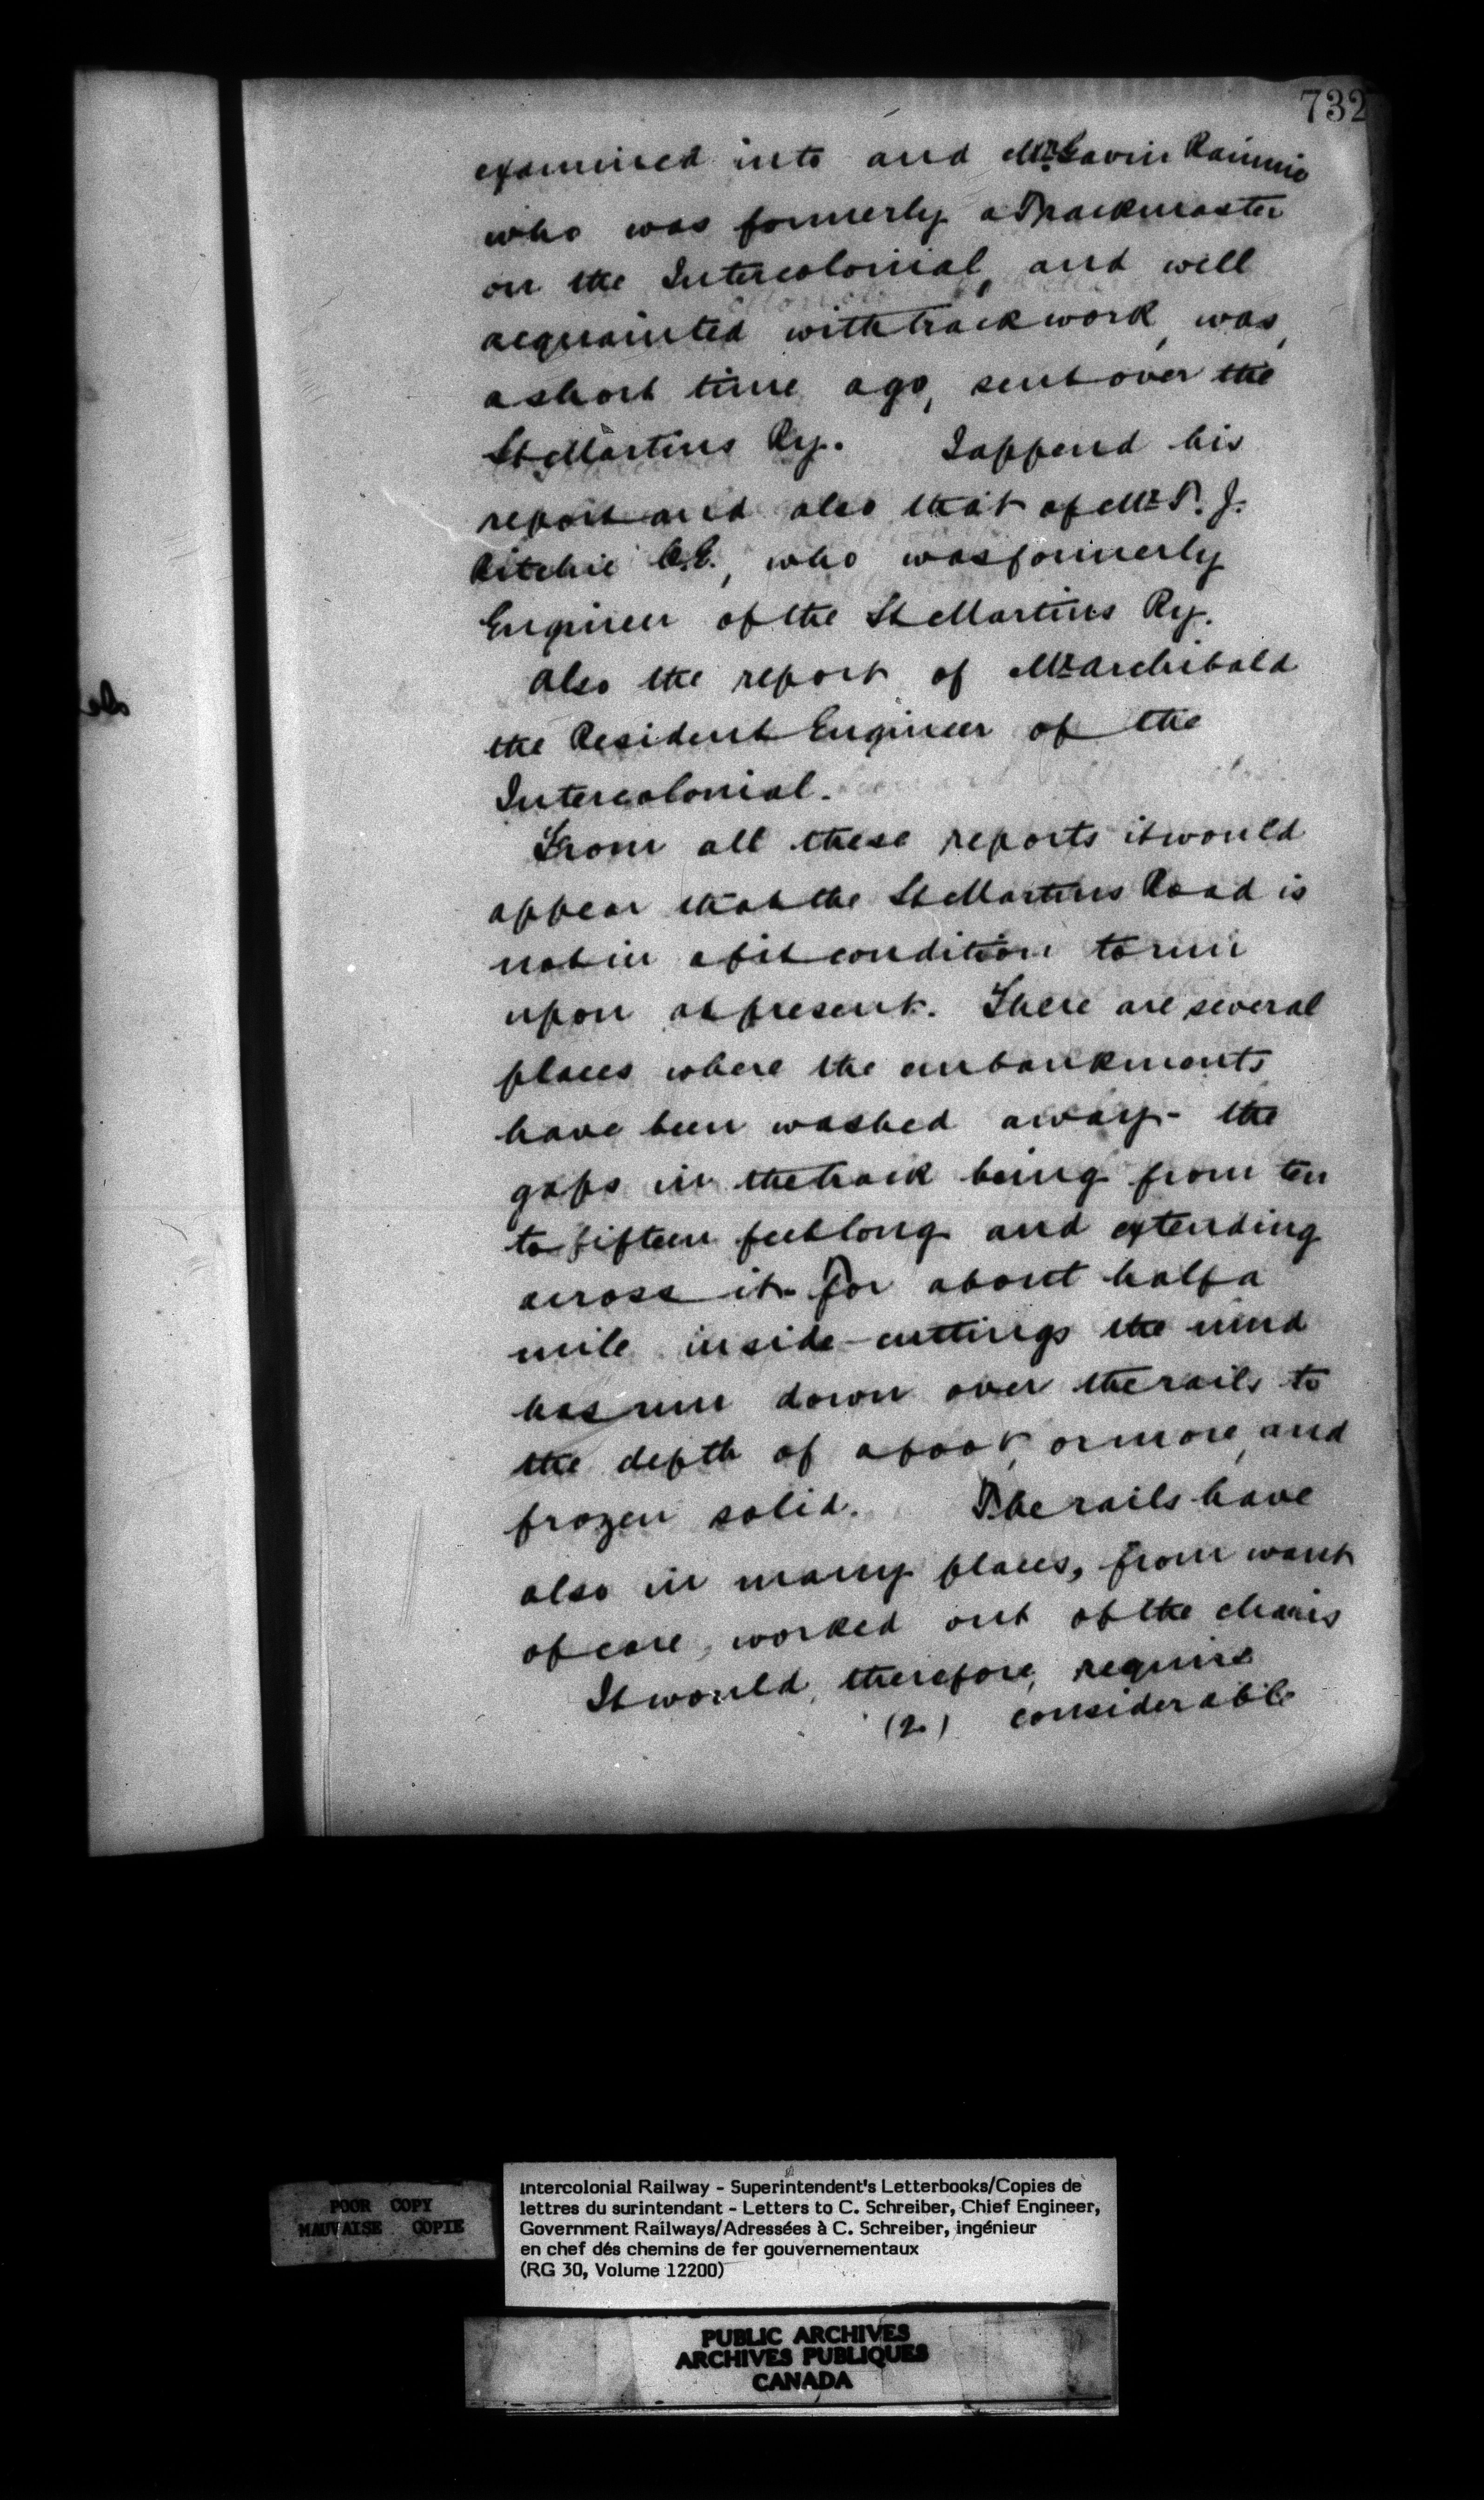 732
examined into and Mr. Gavin Rainnie
who was formerly a Trackmaster
on the Intercolonial, and well
acquainted with track work, was,
a short time ago, sent over the
St Martins Ry. I append his
report and also that of Mr P. J.
Ritchie C.E., who was formerly
Engineer of the St Martins Ry.
Also the report of Mr Archibald
the Resident Engineer of the
Intercolonial.
From all these reports it would
appear that the St Martins Road is
not in a fit condition to run
upon at present. There are several
places where the embankments
have been washed away - the
gaps in the track being from ten
to fifteen feet long and extending
across it. For about half a
mile in side-cuttings the mud
has run down over the rails to
the depth of a foot, or more, and
frozen solid. The rails have
also in many places, from want
of care, worked out of the chairs
It would, therefore, require
(2.) considerable
POOR COPY
MAUVAISE COPIE
Intercolonial Railway - Superintendent's Letterbooks/Copies de
lettres du surintendant - Letters to C. Schreiber, Chief Engineer,
Government Railways/Adressées à C. Schreiber, ingénieur
en chef dés chemins de fer gouvernementaux
(RG 30, Volume 12200)
PUBLIC ARCHIVES
ARCHIVES PUBLIQUES
CANADA